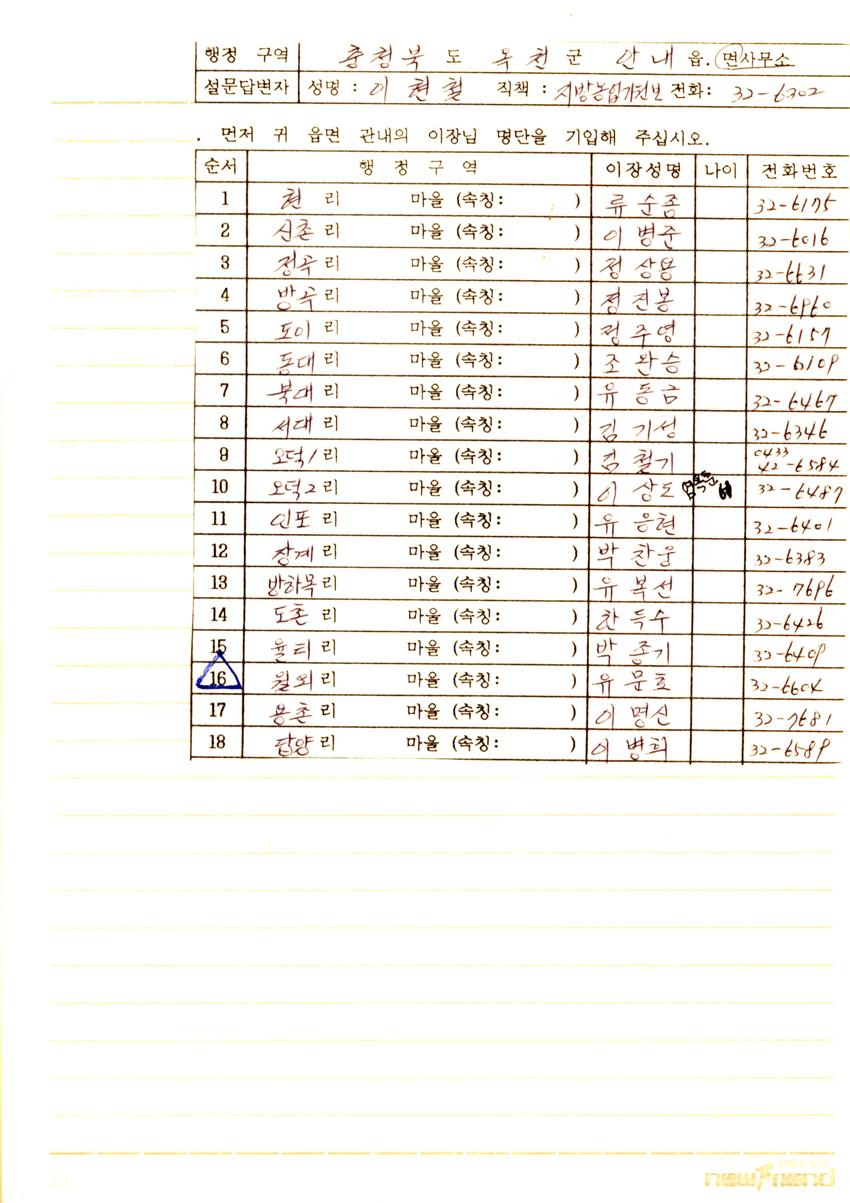 행정 구역 충청북 도 옥천 군 안내 읍. 면사무소
설문답변자 성명 : 이현철 직책 : 지방농업기원보 전화: 32-6302
. 먼저 귀 읍면 관내의 이장님 명단을 기입해 주십시오.
순서 행 정 구 역 이장성명 나이 전화번호
1 현 리 마을 (속칭: ) 류순좀 32-6175
2 신촌 리 마을 (속칭: ) 이병준 32-6016
3 정곡 리 마을 (속칭: ) 정상용 32-6631
4 방곡 리 마을 (속칭: ) 정진봉 32-6960
5 도이 리 마을 (속칭: ) 정주영 32-6157
6 동대 리 마을 (속칭: ) 조완승 32-6109
7 북대 리 마을 (속칭: ) 유동금 32-6467
8 서대 리 마을 (속칭: ) 김기성 32-6346
9 오덕1 리 마을 (속칭: ) 김철기 0433 42-6584
10 오덕2 리 마을 (속칭: ) 이상도 32-6487
11 인포 리 마을 (속칭: ) 유응현 32-6401
12 장계 리 마을 (속칭: ) 박찬웅 32-6383
13 방하목 리 마을 (속칭: ) 유복선 32-7696
14 도촌 리 마을 (속칭: ) 한득수 32-6426
15 율티 리 마을 (속칭: ) 박종기 32-6409
16 월외 리 마을 (속칭: ) 유문호 32-6604
17 용촌 리 마을 (속칭: ) 이명신 32-7681
18 답양 리 마을 (속칭: ) 이병희 32-6589
new friend